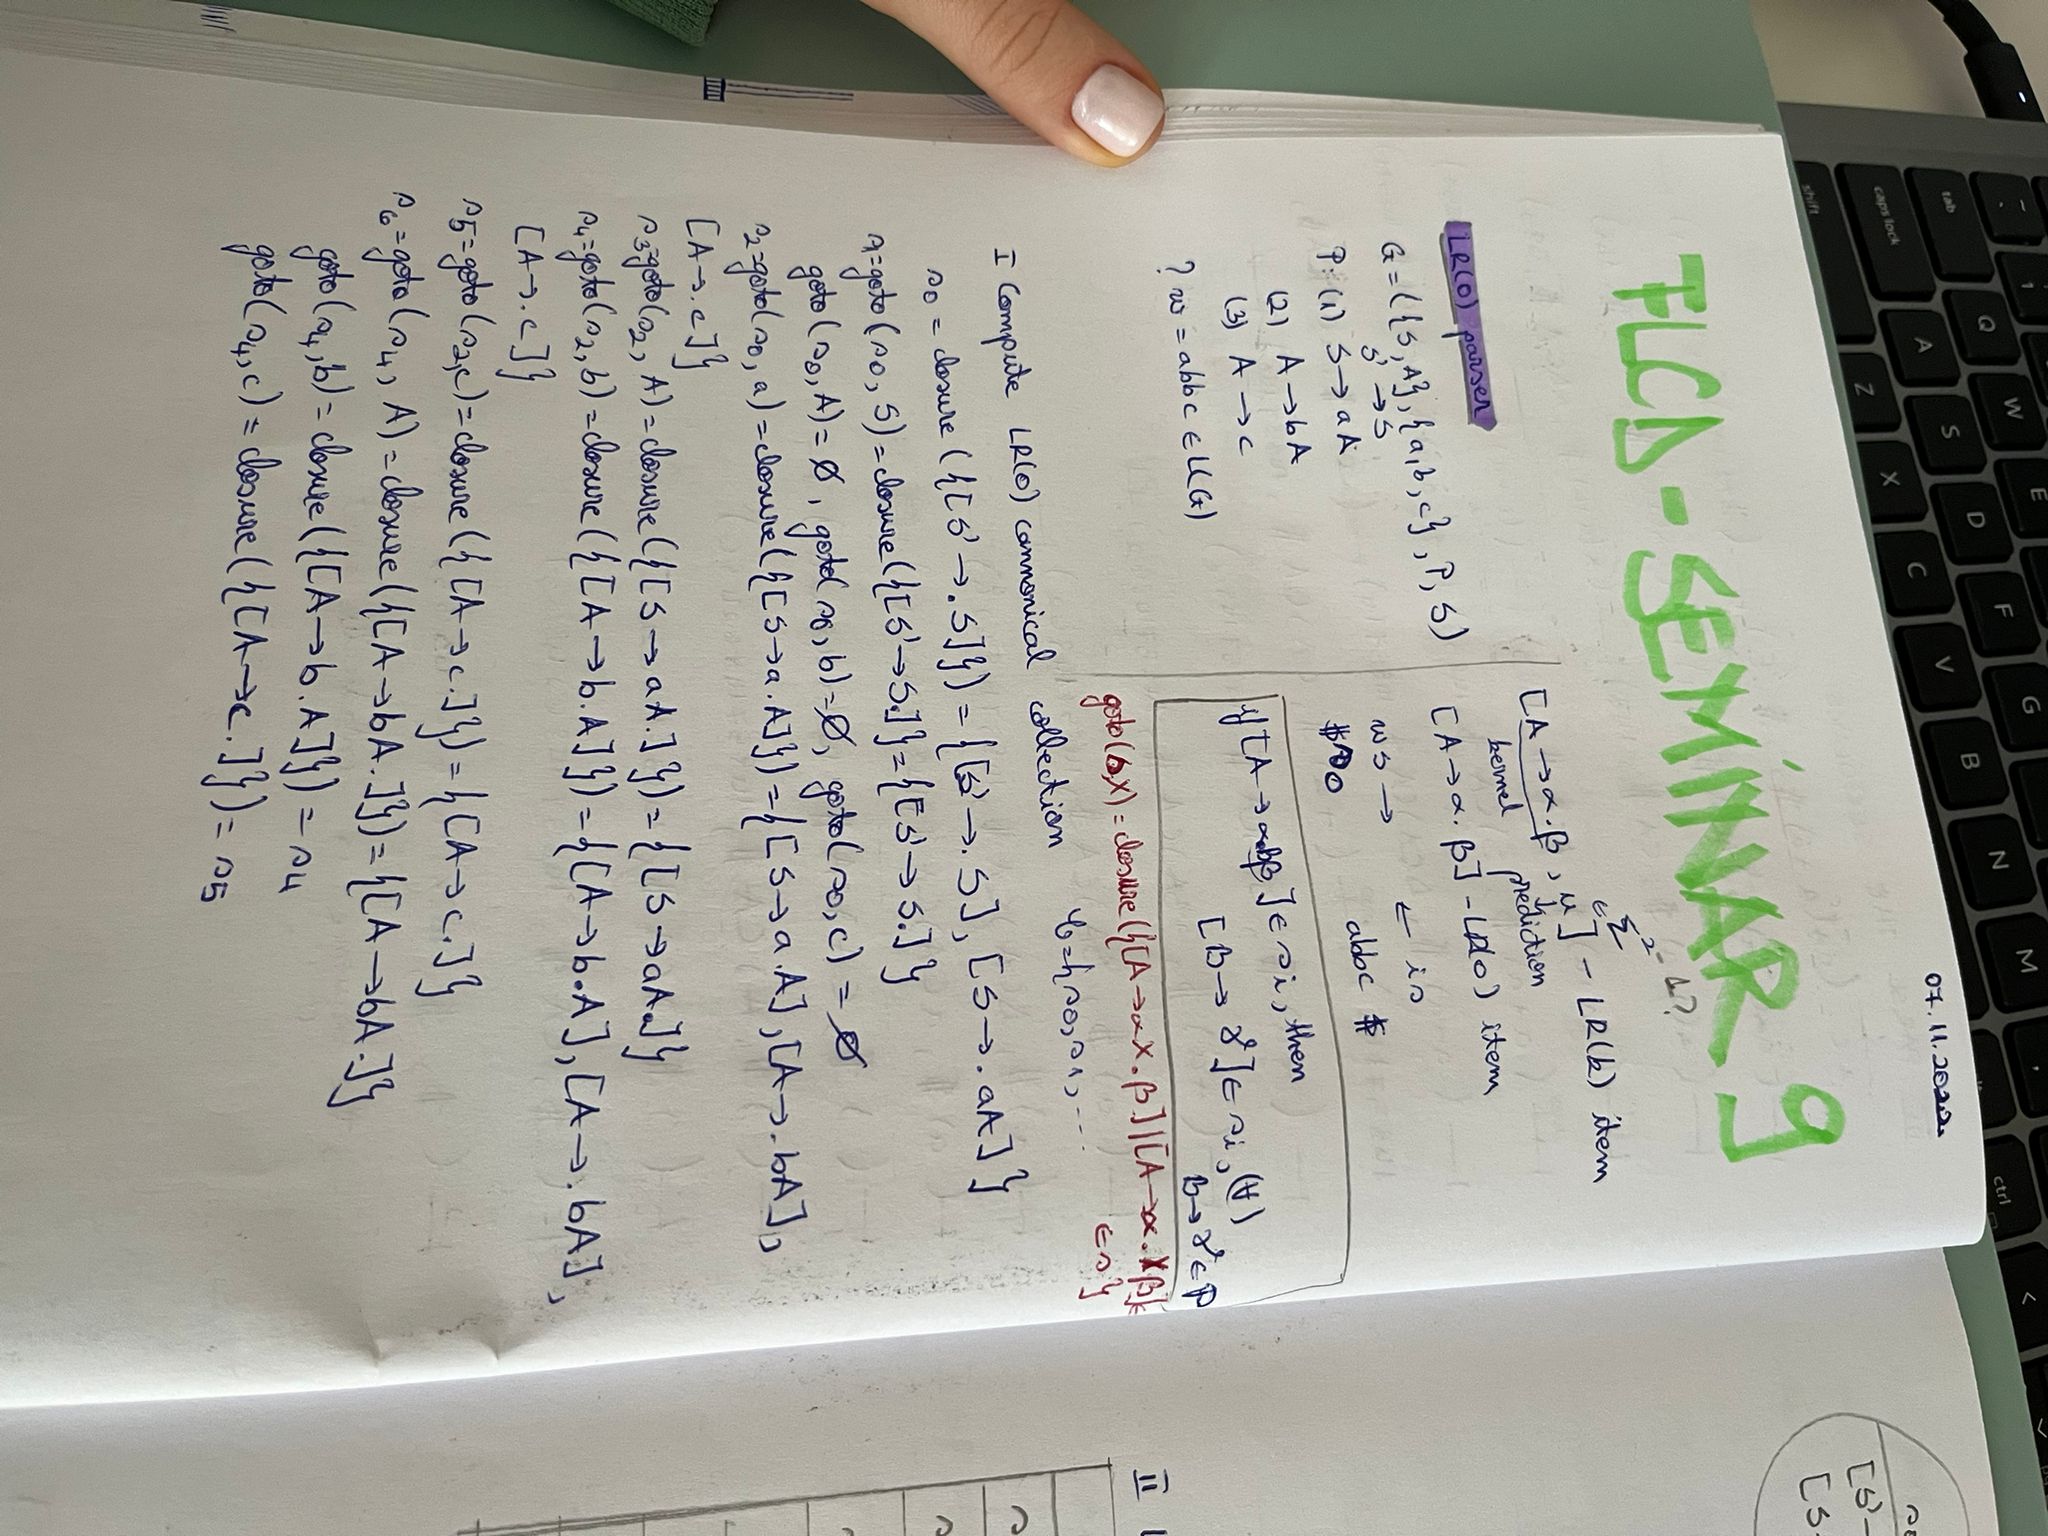 07.11.2022
FLCD - SEMINAR 9
LR(0) parser
G = ({S, A}, {a, b, c}, P, S)
S' → S
P: (1) S → aA
(2) A → bA
(3) A → c
? w = abbc ∈ L(G)
[A → α.β, u] - LR(k) item
kernel prediction
[A → α.β] - LR(0) item
ws → ← is
$s0 abbc $
if [A → α.Bβ] ∈ si, then
[B → γ] ∈ si, (∀)
B → γ ∈ P
goto(s,X) = closure({[A → αX.β] | [A → α.Xβ] ∈
∈ s}
I Compute LR(0) cannonical collection C = {s0, s1, ...
s0 = closure ({[S' → .S]}) = {[S' → .S], [S → .aA]}
s1 = goto(s0, S) = closure({[S' → S.]} = {[S' → S.]}
goto(s0, A) = ∅, goto(s0, b) = ∅, goto(s0, c) = ∅
s2 = goto(s0, a) = closure({[S → a.A]}) = {[S → a.A], [A → .bA],
[A → .c]}
s3 = goto(s2, A) = closure({[S → aA.]}) = {[S → aA.]}
s4 = goto(s2, b) = closure({[A → b.A]}) = {[A → b.A], [A → .bA],
[A → .c]}
s5 = goto(s2, c) = closure({[A → c.]}) = {[A → c.]}
s6 = goto(s4, A) = closure({[A → bA.]}) = {[A → bA.]}
goto(s4, b) = closure({[A → b.A]}) = s4
goto(s4, c) = closure({[A → c.]}) = s5
[S'
[S
II
tab
caps lock
shift
ctrl
Q W E
A S D F G
Z X C V B N M